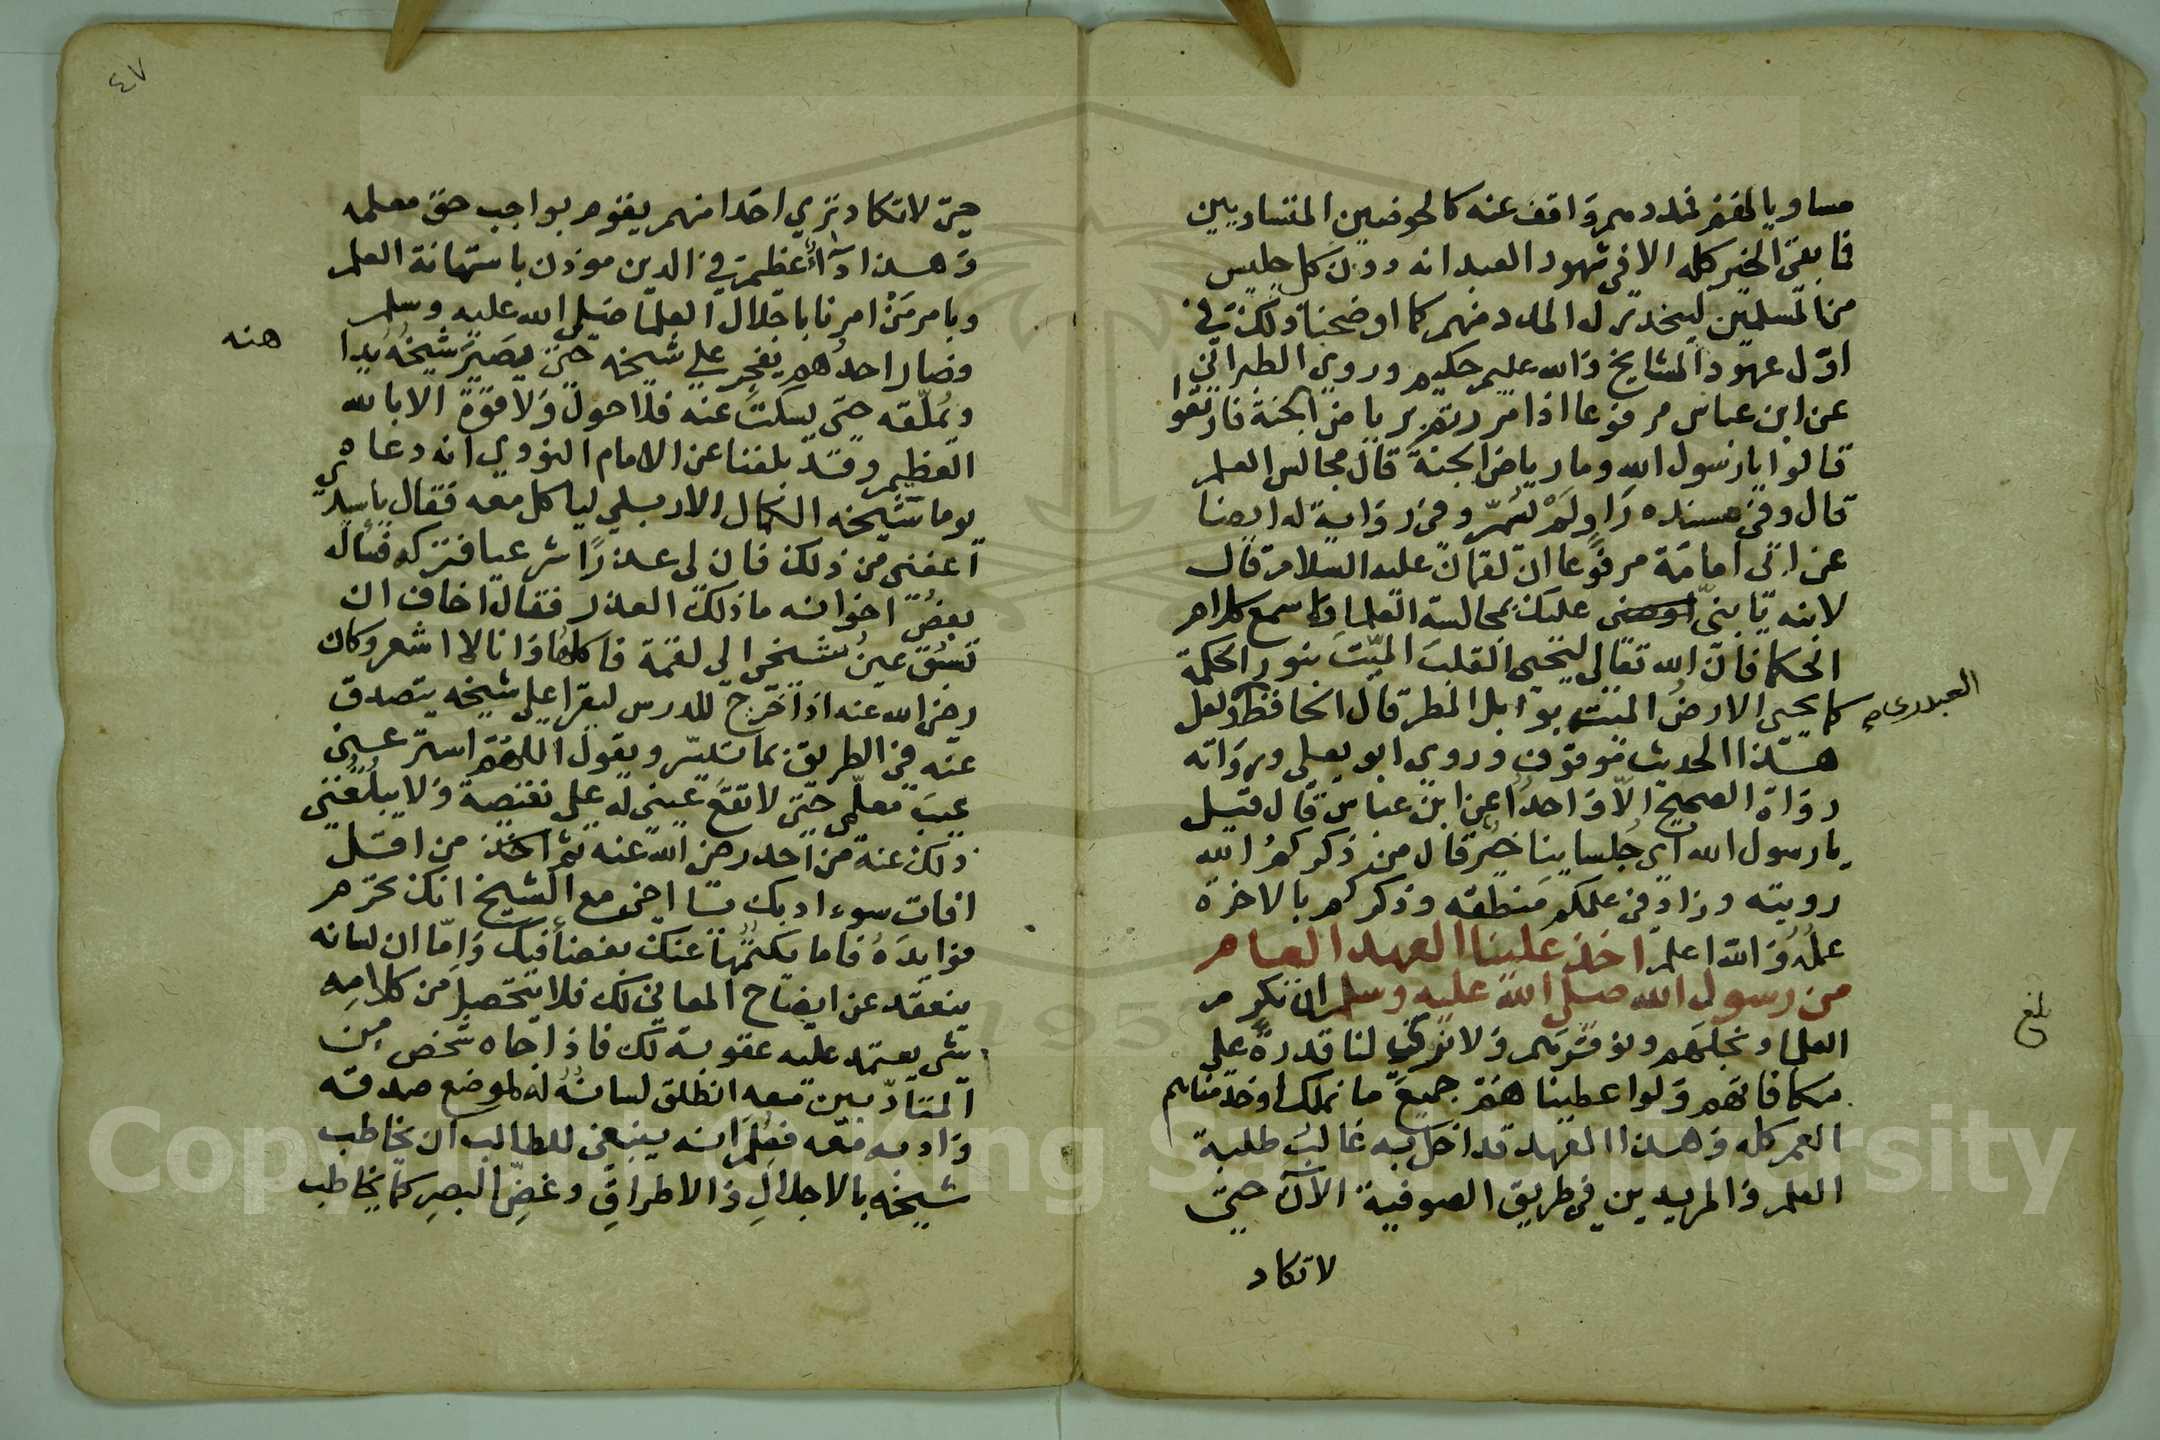 مساويا لهم فمددهم واقف عنه كالحوضين المتساويين
فما بقي الخير كله الا في شهود العبد انه دون كل جليس
من المسلمين لينحدر له المدد منهم كما اوضحنا ذلك في
اول عهود المشايخ والله عليم حكيم وروي الطبراني
عن ابن عباس مرفوعا اذا مررتم برياض الجنة فارتعوا
قالوا يا رسول الله وما رياض الجنة قال مجالس العلم
قال وفي مسنده راو لم يسم وفي رواية له ايضا
عن ابي امامة مرفوعا ان لقمان عليه السلام قال
لابنه يا بني عليك بمجالسة العلما واسمع كلام
الحكما فان الله تعالى ليحيي القلب الميت بنور الحكمة
كما يحيي الارض الميتة بوابل المطر قال الحافظ ولعل
العبدري
هذا الحديث موقوف وروي ابو يعلي ورواته
رواة الصحيح الا واحدا عن ابن عباس قال قيل
يا رسول الله اي جلساينا خير قال من ذكركم الله
رويته وزاد في علمكم منطقه وذكركم بالاخرة
عمله والله اعلم اخذ علينا العهد العام
من رسول الله صلى الله عليه وسلم ان نكرم
بلغ
العلما ونجلهم ونوقرهم ولا نري لنا قدرة على
مكافاتهم ولو اعطيناهم جميع ما نملك او خدمناهم
العمر كله وهذا العهد قد اخل به غالب طلبة
العلم والمريدين في طريق الصوفية الآن حتى
لا تكاد
٤٧
حتى لا تكاد تري احدا منهم يقوم بواجب حق معلمه
وهذا داء عظيم في الدين موذن باستهانة العلم
وبامر من امرنا باجلال العلما صلى الله عليه وسلم
وصار احدهم يفجر علي شيخه حتى يصير شيخه يدا
هنه
ويملقه حتى يسكت عنه فلا حول ولا قوة الا بالله
العظيم وقد بلغنا عن الامام النووي انه دعاه
يوما شيخه الكمال الاربلي لياكل معه فقال يا سيدي
اعفني من ذلك فان لي عذرا شرعيا فتركه فساله
بعض اخوانه ما ذلك العذر فقال اخاف ان
تسبق عين شيخي الى لقمة فاكلها وانا لا اشعر وكان
رضي الله عنه اذا خرج للدرس ليقرا علي شيخه يتصدق
عنه في الطريق بما تيسر ويقول اللهم استر عني
عيب معلمي حتى لا تقع عيني له علي نقيصة ولا يبلغني
ذلك عنه من احد رضي الله عنه ثم اخذ من اقل
افات سوء ادبك يا اخي مع الشيخ انك تحرم
فوايده فاما بكتمها عنك بغضا فيك واما ان لسانه
ينعقد عن ايضاح المعاني لك فلا يتحصل من كلامه
شي يعتمد عليه عقوبة لك فاذا جاه شخص من
المتادبين معه انطلق لسانه له لموضع صدقه
وادبه معه فعلم انه ينبغي للطالب ان يخاطب
شيخه بالاجلال والاطراق وغض البصر كما يخاطب
Copyright © King Saud University
1957